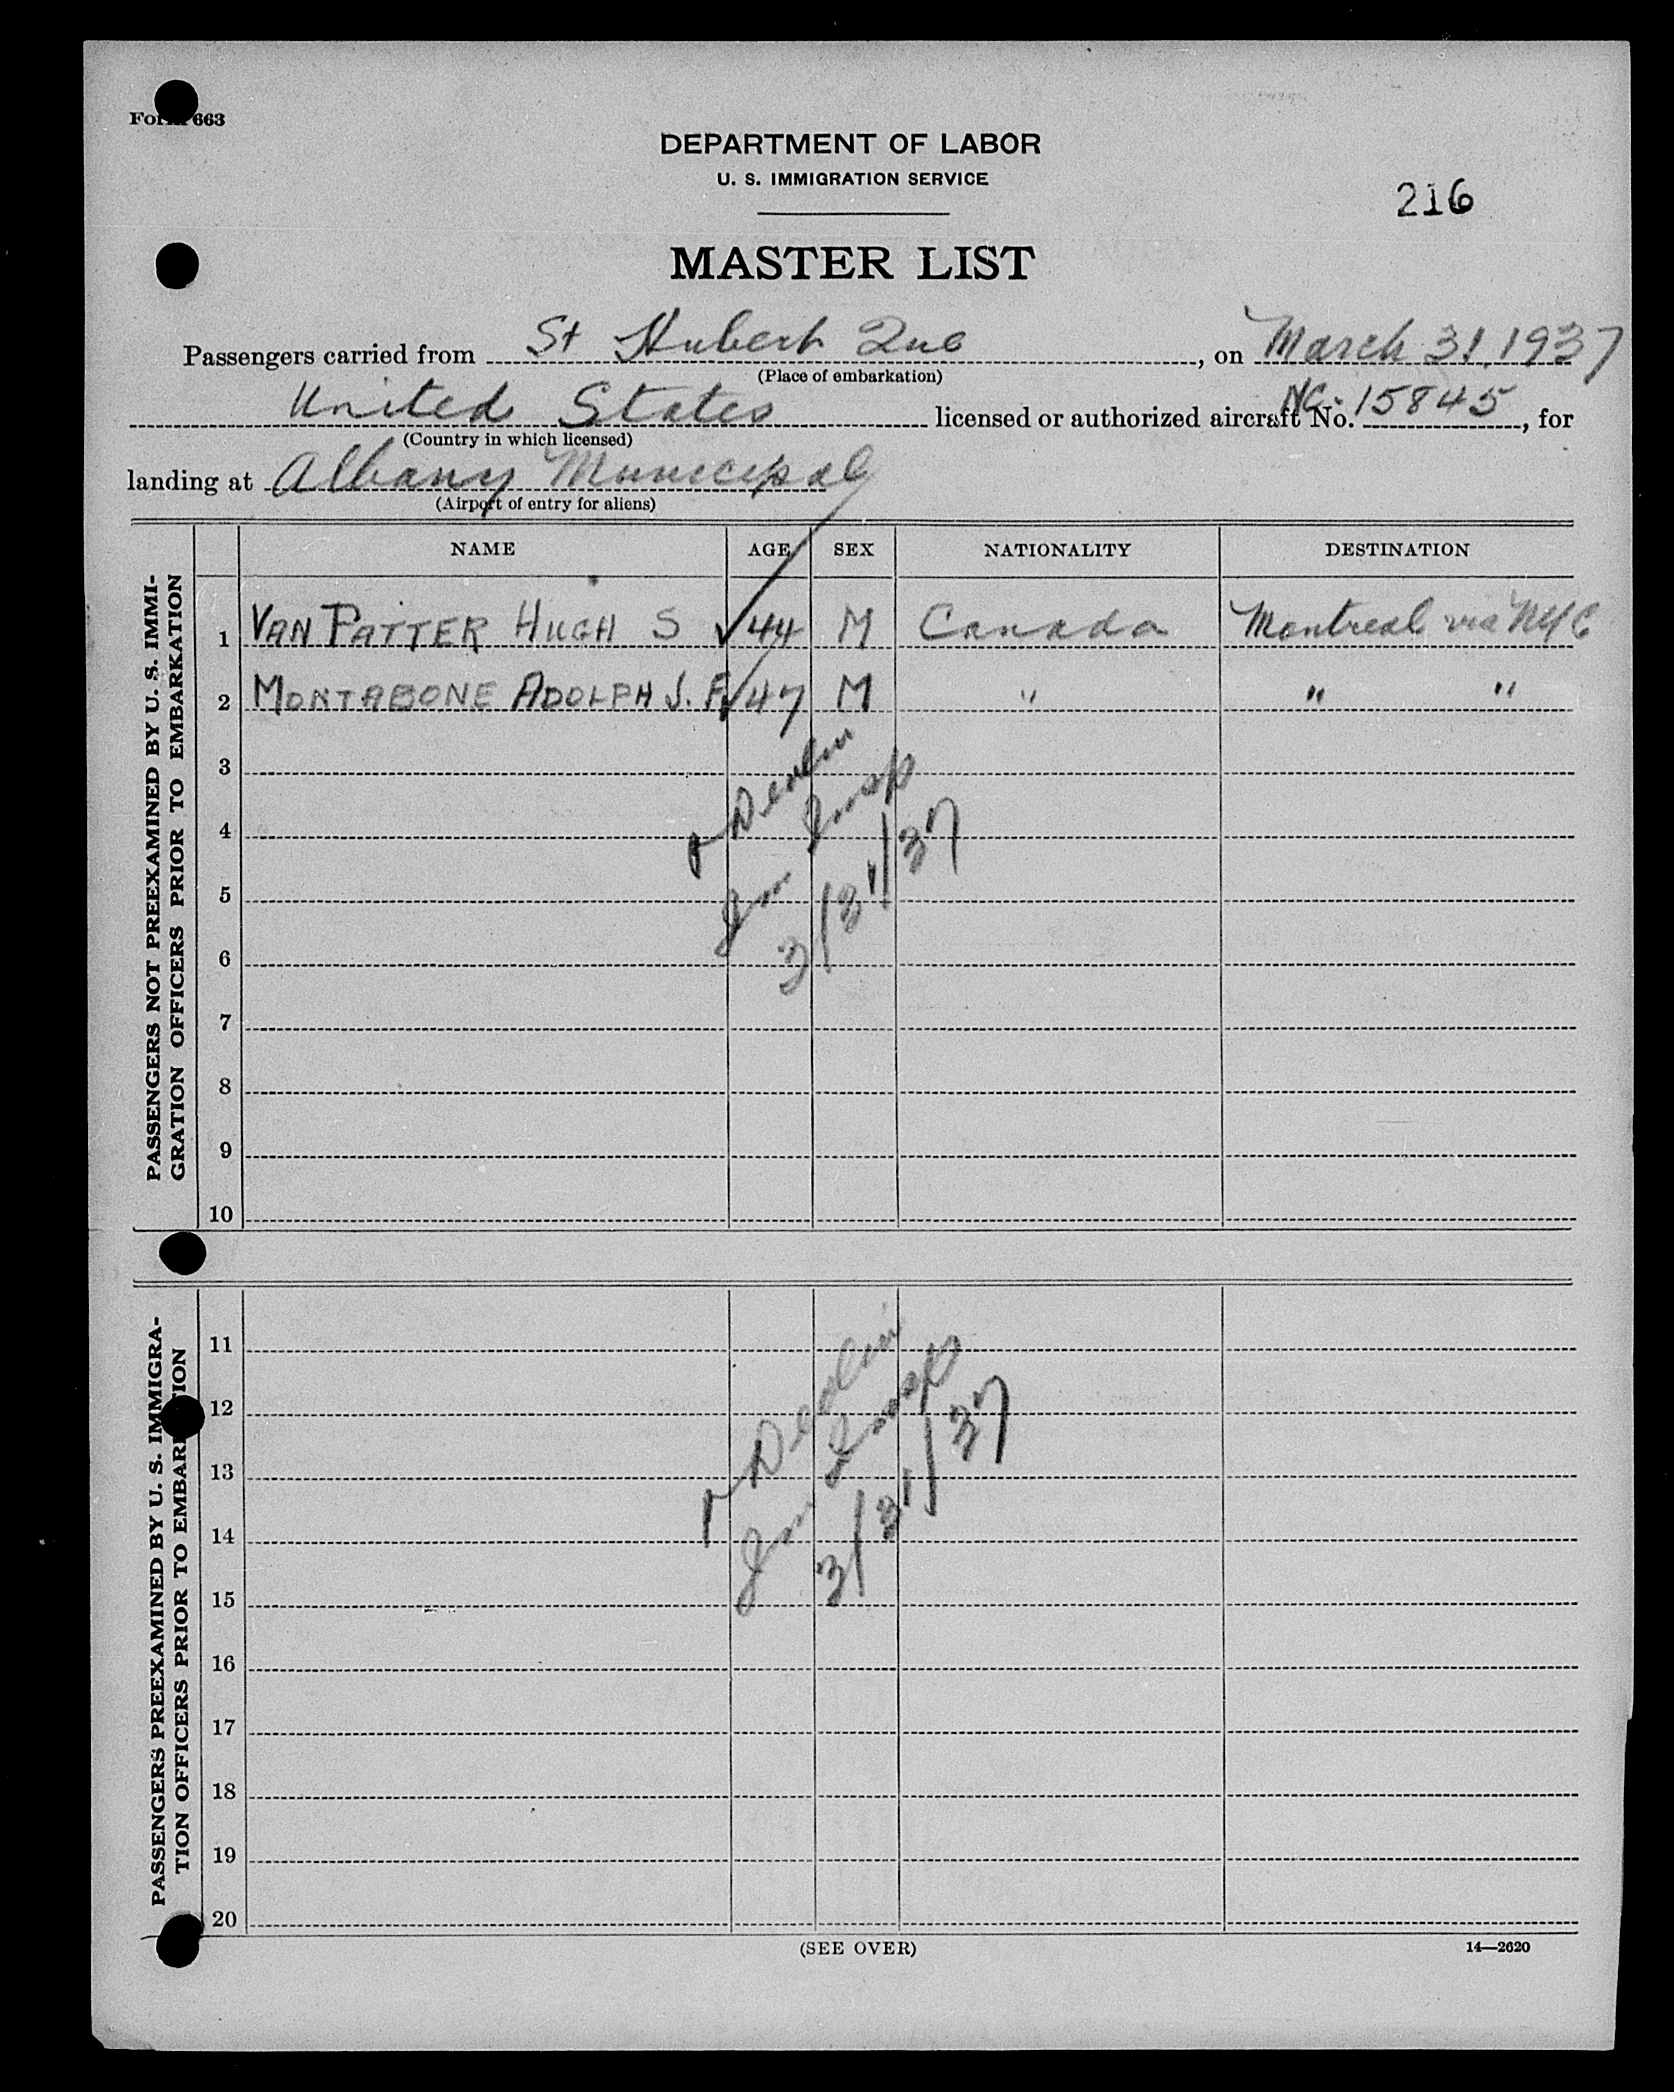 Form 663
DEPARTMENT OF LABOR
U. S. IMMIGRATION SERVICE
216
MASTER LIST
Passengers carried from St Hubert Que, on March 31, 1937
(Place of embarkation)
United States licensed or authorized aircraft No. NC. 15845, for
(Country in which licensed)
landing at Albany Municipal
(Airport of entry for aliens)
NAME AGE SEX NATIONALITY DESTINATION
PASSENGERS NOT PREEXAMINED BY U. S. IMMI-
GRATION OFFICERS PRIOR TO EMBARKATION
1 VAN PATTER HUGH S ✓ 44 M Canada Montreal via NYC
2 MONTABONE ADOLPH J. F. ✓ 47 M " " "
3
4
5
6
7
8
9
10
Devlin
Imm Insp
3/31/37
PASSENGERS PREEXAMINED BY U. S. IMMIGRA-
TION OFFICERS PRIOR TO EMBARKATION
11
12
13
14
15
16
17
18
19
20
Devlin
Imm Insp
3/31/37
(SEE OVER)
14—2620